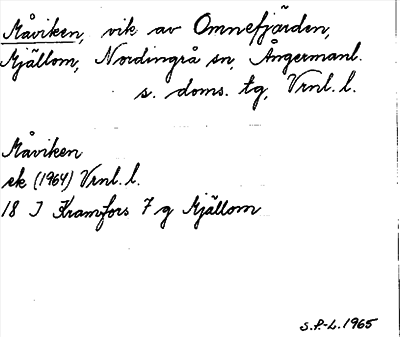 Måviken, vik av Omnefjärden,
Mjällom, Nordingrå sn, Ångermanl.
s. doms. tg, Vrnl. l.
Måviken
ek (1964) Vrnl. l.
18 J Kramfors 7 g Mjällom
S.P.-L. 1965